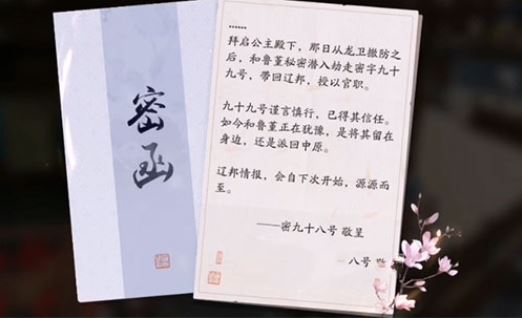 密函
……
拜启公主殿下，那日从龙卫撤防之
后，和鲁堇秘密潜入劫走密字九十
九号，带回辽邦，授以官职。
九十九号谨言慎行，已得其信任。
如今和鲁堇正在犹豫，是将其留在
身边，还是派回中原。
辽邦情报，会自下次开始，源源而
至。
——密九十八号 敬呈
八号